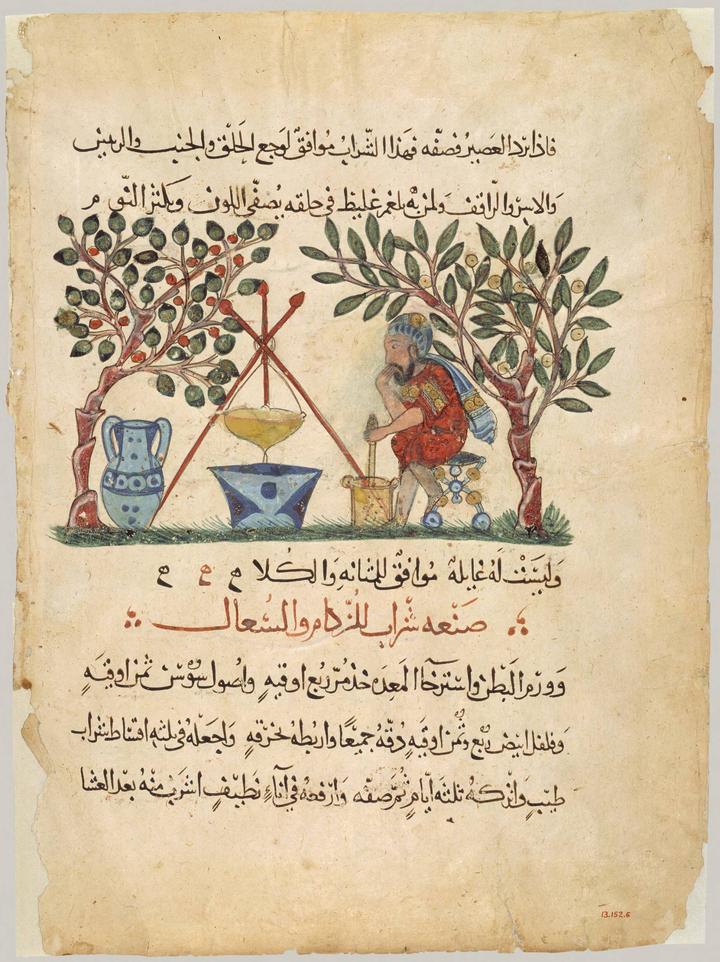 فاذا برد العصير فصفه فهذا الشراب موافق لوجع الحلق والجنب والريتين
والا سر والراقف ولمن به بلغم غليظ في حلقه يصفي اللون ويكثر النوم م
وليست له غايله موافق للمثانه والكلا ح ح ح
صنعه شراب للزكام والسعال
وورم البطن واسترخا المعده خذ مر ربع اوقيه واصول سوس ثمن اوقيه
وفلفل ابيض ربع وثمن اوقيه دقه جميعا واربطه بخرقه واجعله في ثلثه اقساط شراب
طيب واتركه ثلثه ايام ثم صفه وارفعه في اناء نظيف اشرب منه بعد العشا
13.152.6